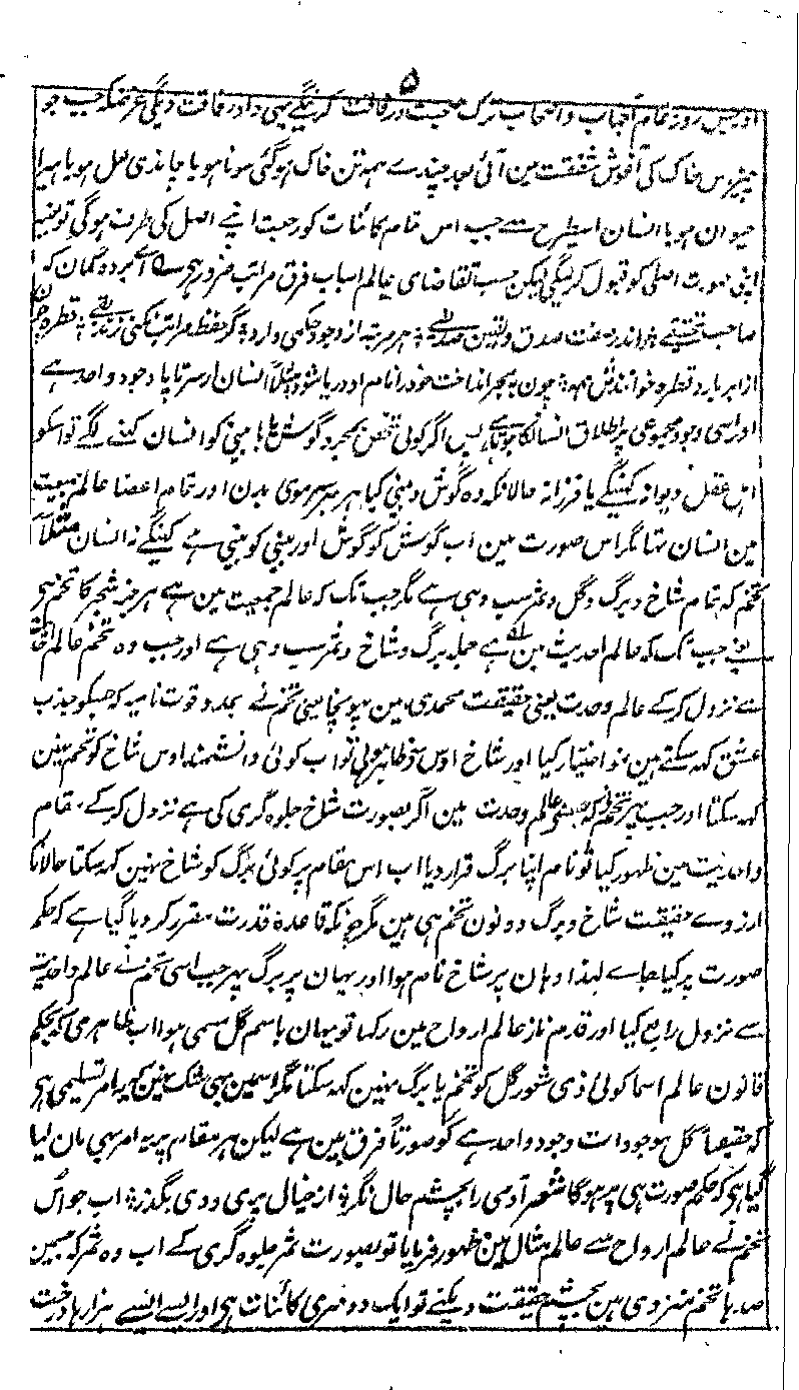 ۵
تمام احباب و اصحاب ترک صحبت اور رفاقت کرینگے یہی داد رفاقت دینگی غرضکہ جب جو
خاک کی آغوش شفقت مین آئی بعد چندے ہمہ تن خاک ہو گئی سونا ہو یا چاندی لعل ہو یا ہیرا
حیوان ہو یا انسان اسیطرح سے جب اس تمام کائنات کو رجعت اپنے اصل کی طرف ہوگی تو
اپنی صورت اصلی کو قبول کریگی لیکن حسب تقاضای عالم اسباب فرق مراتب ضرور ہے اے بردہ گمان کہ
صاحب تحقیقے ؛ و اندر صفت صدق و یقین صدیقے ؛ ہر مرتبہ از وجود حکمی دارد ؛ گر حفظ مراتب نکنی زندیقے ؛ قطرہ
از ابر بارد قطرہ خوانندش ہمہ ؛ چون بہ بحر انداخت خود را نام او دریا شود مثلاً انسان از سر تا پا وجود واحد ہے
اور اسی وجود مجموعی پر اطلاق انسان کا ہوتا ہے پس اگر کوئی شخص بمجرد گوش یا بینی کو انسان کہنے لگے تو اسکو
اہل عقل دیوانہ کہینگے یا فرزانہ حالانکہ وہ گوش و بینی کیا ہر ہر سر موی بدن اور تمام اعضا عالم جمعیت
مین انسان تہا مگر اس صورت مین اب گوش کو گوش اور بینی کو بینی ہے کہینگے نہ انسان مثلاً
تخم کہ تمام شاخ و برگ و گل و ثمر سب وہی ہے مگر جب تک کہ عالم جمعیت مین ہے ہر چند شجر کا تخم ہے
یعنے جب تک کہ عالم احدیت مین ہے جملہ برگ و شاخ و ثمر سب وہی ہے اور جب وہ تخم عالم
سے نزول کر کے عالم وحدت یعنی حقیقت محمدی مین پہونچا یعنی تخم نے بمدد قوت نامیہ کہ جسکو جذب
عشق کہہ سکتے ہین نمو اختیار کیا اور شاخ اوس سے ظاہر ہوئی تو اب کوئی دانشمند اوس شاخ کو تخم نہین
کہہ سکتا اور جب پہر تخم نے کہ جسنے عالم وحدت مین آکر بصورت شاخ جلوہ گری کی ہے نزول کر کے مقام
واحدیت مین ظہور کیا تو نام اپنا برگ قرار دیا اب اس مقام پر کوئی برگ کو شاخ نہین کہہ سکتا حالانکہ
ازروے حقیقت شاخ و برگ دونون تخم ہی ہین مگر چونکہ قاعدہ قدرت مقرر کر دیا گیا ہے کہ حکم
صورت پر کیا جاے لہذا وہان پر شاخ نام ہوا اور یہان پر برگ پہر جب اسی تخم نے عالم واحدیت
سے نزول رابع کیا اور قدم ناز عالم ارواح مین رکہا تو یہان باسم گل مسمی ہوا اب ظاہر ہی کہ بحکم
قانون عالم اسما کوئی ذی شعور گل کو تخم یا برگ نہین کہہ سکتا مگر اسمین بہی شک نہین کہ یہ امر تسلیمی ہے
کہ حقیقتاً کل موجودات وجود واحد ہے گو صورتاً فرق بین ہے لیکن ہر مقام پر یہ امر بہی مان لیا
گیا ہی کہ حکم صورت ہی پر ہوگا شعر آدمی را بچشم حال نگر ؛ از خیال پری و دی بگذر ؛ اب جو اس
تخم نے عالم ارواح سے عالم مثال مین ظہور فرمایا تو بصورت ثمر جلوہ گری کے اب وہ ثمر کہ جسمین
صدہا تخم منزوی ہین بچشم حقیقت دیکہئے تو ایک دوسری کائنات ہی اور ایسے ایسے ہزارہا درخت